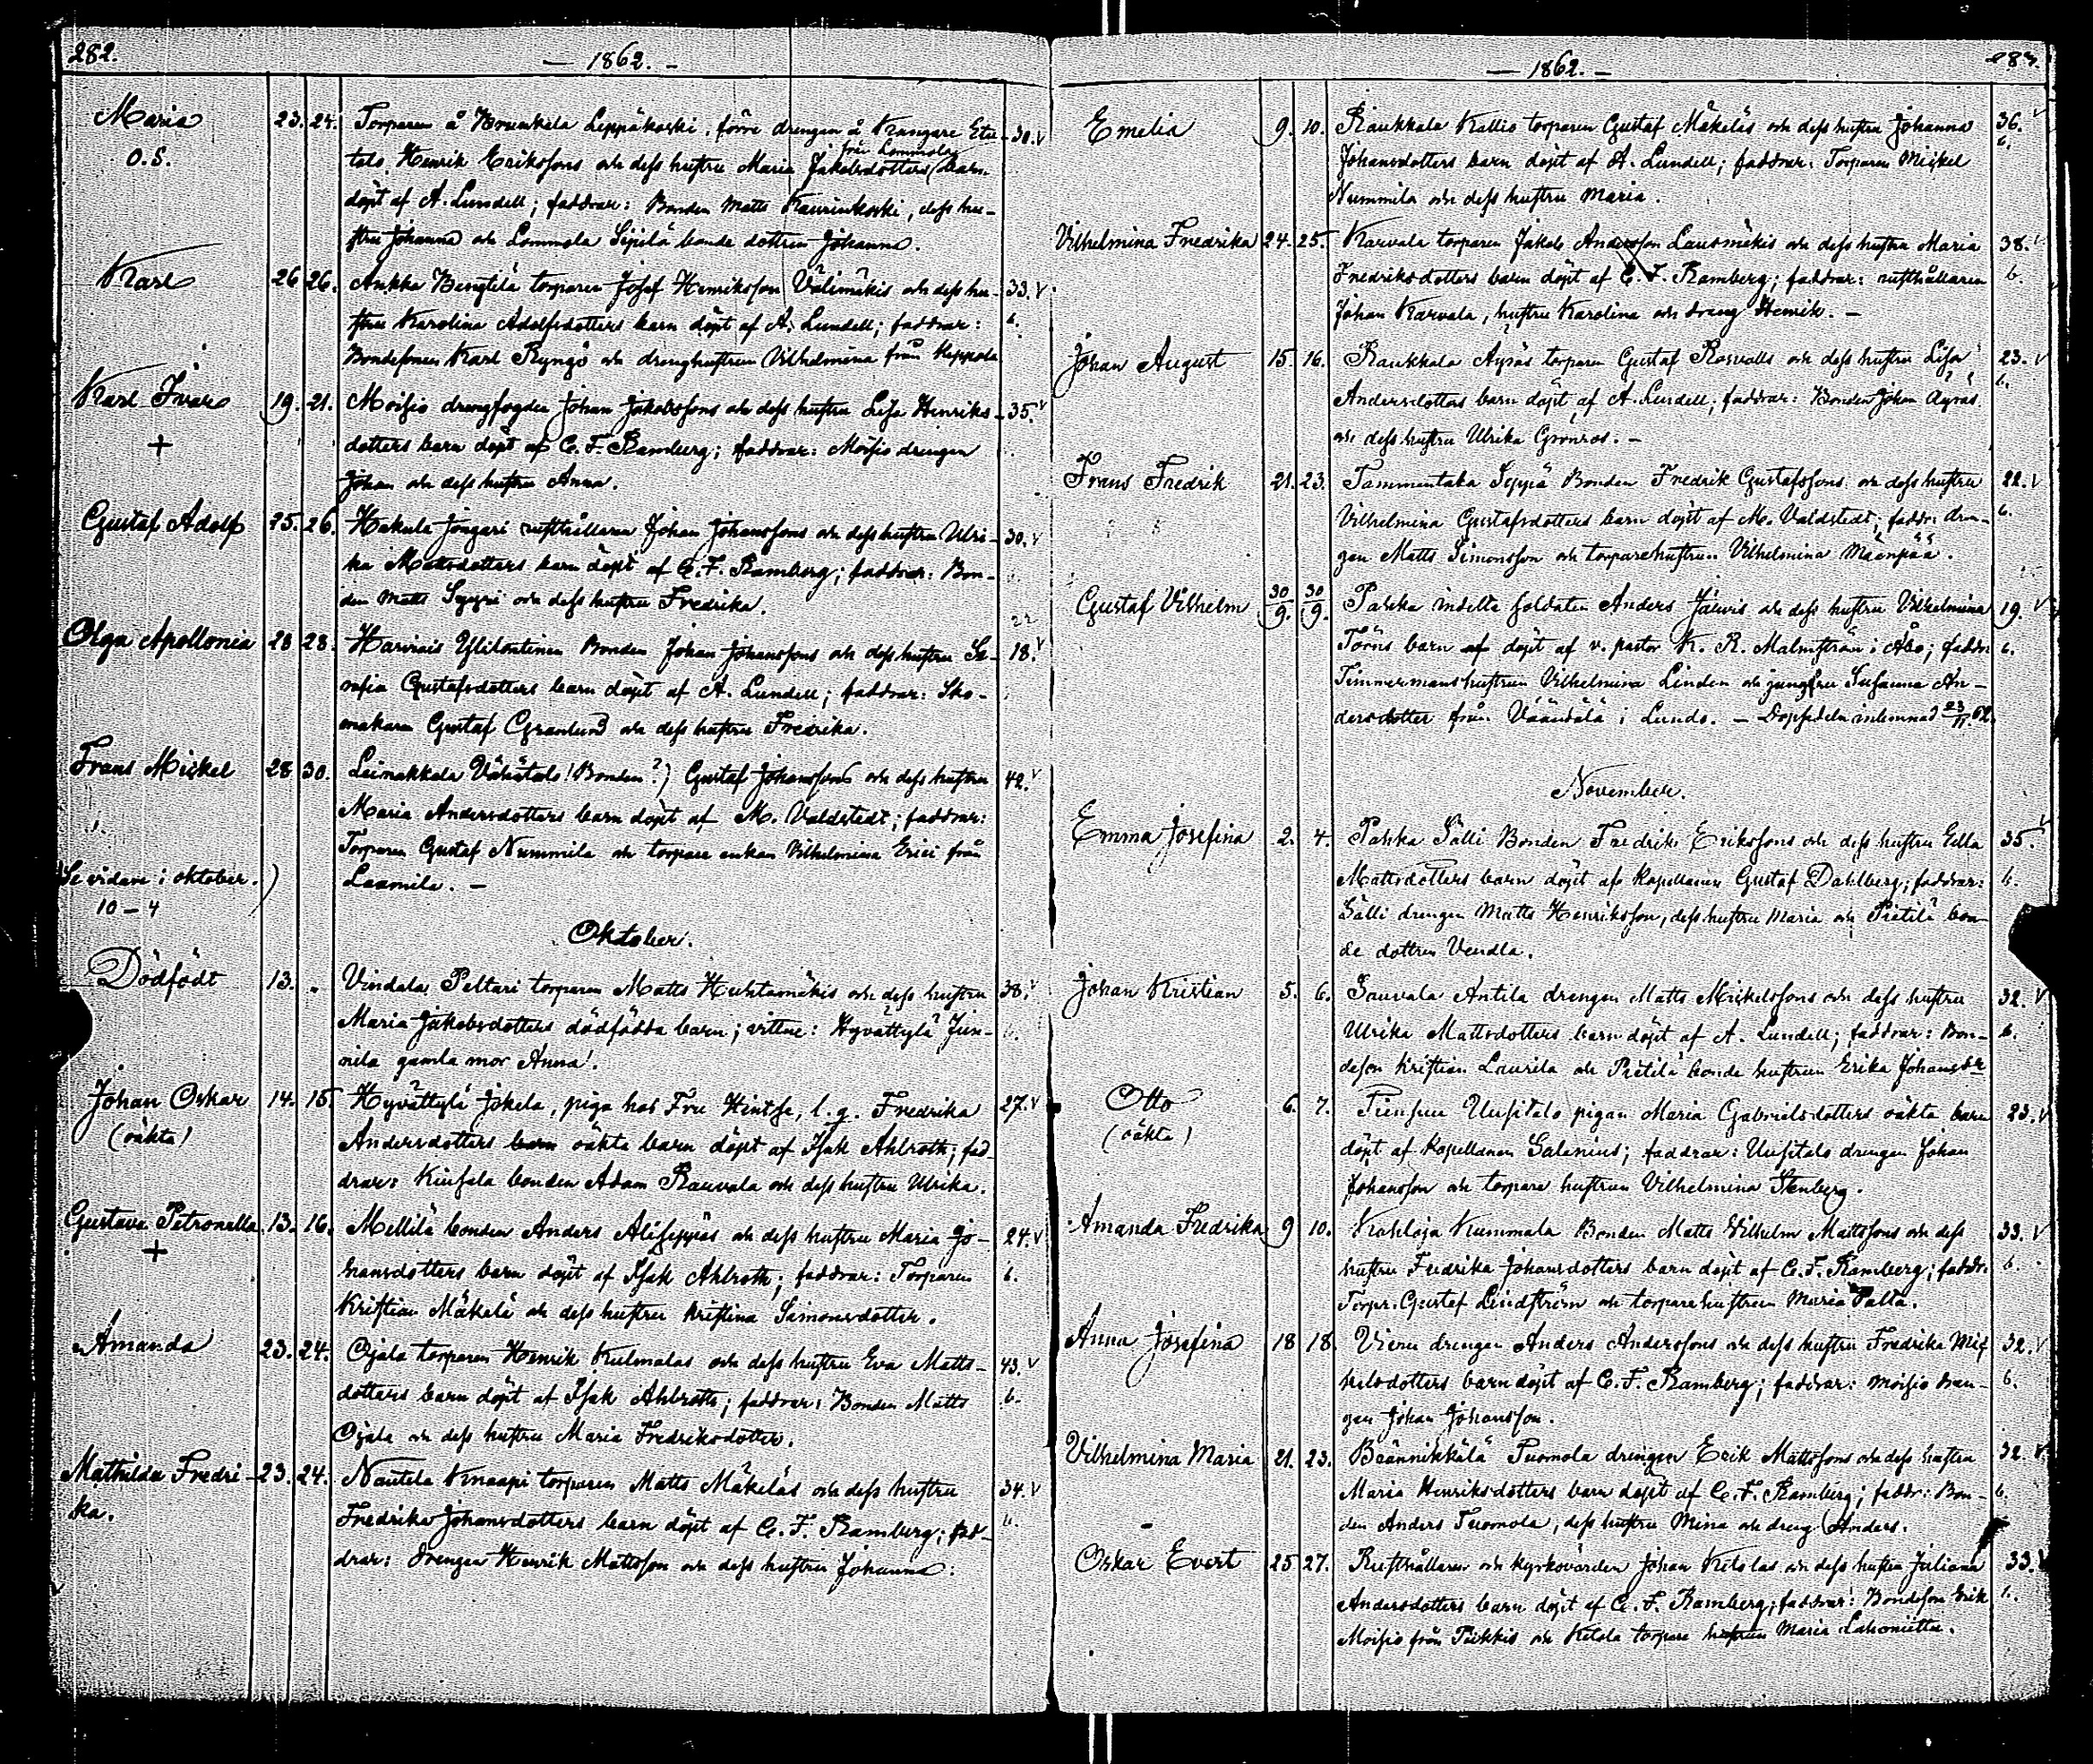 282.
— 1862. —
Maria 23. 24. Torparen å Hrunkala Leppäkoski, förre drengen å Krangare Eta- 30. v
o.S. talo Henrik Eriksfons och dess hustru Maria Jakobsdotters (från Lommola) barn
döpt af A. Lundell; faddrar: Bonden Matts Kaurinkoski, dess hu-
stru Johanna och Lommola Sipilä bonde dottren Johanna.
Karl 26 26. Aukka Bengtilä torparen Josef Henriksson Välimäkis och dess hu- 33. v
stru Karolina Adolfsdotters barn döpt af A. Lundell; faddrar: 6.
Bondesonen Karl Ryngö och drenghustrun Vilhelmina från Keppola
Karl Ivar 19. 21. Moisio drengfogden Johan Jakobssons och dess hustru Lisa Henriks- 35. v
+ dotters barn döpt af C. F. Ramberg; faddrar: Moisio drengen
Johan och dess hustru Anna.
Gustaf Adolf 25. 26. Hakula Jongari rusthållaren Johan Johanssons och dess hustru Ulri- 30. v
ka Mattsdotters barn döpt af C. F. Ramberg; faddrar: Bon-
den Matts Syyri och dess hustru Fredrika.
22
Olga Apollonia 28 28. Harvais Ylitontinen Bonden Johan Johanssons och dess hustru Se- 18. v
rafia Gustafsdotters barn döpt af A. Lundell; faddrar: Sko-
makaren Gustaf Granlund och dess hustru Fredrika.
Frans Mickel 28 30. Leinakkala Vähätalo (Bonden?) Gustaf Johanssons och dess hustru 42. v
Maria Andersdotters barn döpt af M. Valdstedt; faddrar:
Torparen Gustaf Nummila och torpare enkan Vilhelmina Erici från
Se vidare i oktober.) Laamila. —
10-4
Oktober.
Dödfödt 13. „ Vindala Peltari torparen Matts Huhtamäkis och dess hustru 38. v
Maria Jakobsdotters dödfödda barn; vittne: Hyvättylä Jun- 6.
nila gamla mor Anna!
Johan Oskar 14. 15. Hyvättylä Jokela, piga hos Fru Hintze, l. g. Fredrika 27. v
(oäkta) Andersdotters barn oäkta barn döpt af Isak Ahlroth; fad-
drar: Kinsala bonden Adam Rauvala och dess hustru Ulrika.
Gustava Petronella 13. 16. Mellilä bonden Anders Aliseppäs och dess hustru Maria Jo- 24. v
+ hansdotters barn döpt af Isak Ahlroth; faddrar: Torparen 6.
Kristian Mäkelä och dess hustru Kristina Simonsdotter.
Amanda 23. 24. Ojala torparen Henrik Kulmalas och dess hustru Eva Matts- 43. v
dotters barn döpt af Isak Ahlroth; faddrar: Bonden Matts 6.
Ojala och dess hustru Maria Fredriksdotter.
Mathilda Fredri- 23. 24. Nautela Knaapi torparen Matts Mäkeläs och dess hustru 34. v
ka. Fredrika Johansdotters barn döpt af C. F. Ramberg; fad- 6.
drar: drengen Henrik Mattsson och dess hustru Johanna.
283.
— 1862. —
Emelia 9. 10. Raukkala Kallio torparen Gustaf Mäkeläs och dess hustru Johanna 36. v
Johansdotters barn döpt af A. Lundell; faddrar: Torparen Mickel 6.
Nummila och dess hustru Maria.
Vilhelmina Fredrika 24. 25. Karvala torparen Jakob Andersson Lausmäkis och dess hustru Maria 38. v
Fredriksdotters barn döpt af C. F. Ramberg; faddrar: rusthållaren 6.
Johan Karvala, hustru Karolina och dreng Henrik. —
Johan August 15. 16. Raukkala Äyräs torparen Gustaf Rosvalls och dess hustru Lisa 23. v
Andersdotters barn döpt af A. Lundell; faddrar: Bonden Johan Äyräs 6.
och dess hustru Ulrika Grönros. —
Frans Fredrik 21. 23. Tammentaka Seppä Bonden Fredrik Gustafssons och dess hustru 22. v
Vilhelmina Gustafsdotters barn döpt af M. Valdstedt; faddr: dren- 6.
gen Matts Simonsson och torparehustrun Vilhelmina Mäenpää.
Gustaf Vilhelm 30/9. 30/9. Pahka indelta soldaten Anders Järvis och dess hustru Vilhelmina 19. v
Törns barn af döpt af v. pastor K. R. Malmström i Åbo; faddr: 6.
Timmermanshustrun Vilhelmina Linden och jungfru Susanna An-
dersdotter från Väändälä i Lundo. — Dopsedeln inlemnad 23/11. 62.
November.
Emma Josefina 2. 4. Pahka Sälli Bonden Fredrik Erikssons och dess hustru Eella 35. v
Mattsdotters barn döpt af Kapellanen Gustaf Dahlberg; faddrar: 6.
Sälli drengen Matts Henriksson, dess hustru Maria och Pietilä bon-
de dottren Vendla.
Johan Kristian 5. 6. Sauvala Antila drengen Matts Mickelssons och dess hustru 32. v
Ulrika Mattsdotters barn döpt af A. Lundell; faddrar: Bon- 6.
deson Kristian Laurila och Pietilä bonde hustrun Erika Johansdr
Otto 6. 7. Uusitalo pigan Maria Gabrielsdotters oäkta barn 23. v
(oäkta) döpt af kapellanen Salenius; faddrar: Uusitalo drengen Johan
Johansson och torpare hustrun Vilhelmina Stenberg.
Amanda Fredrika 9 10. Kahloja Kummala Bonden Matts Vilhelm Mattssons och dess 33. v
hustru Fredrika Johansdotters barn döpt af C. F. Ramberg; faddr: 6.
Torpr. Gustaf Lindström och torparehustrun Maria Palta.
Anna Josefina 18 18. Vieru drengen Anders Anderssons och dess hustru Fredrika Mic 32. v
kelsdotters barn döpt af C. F. Ramberg; faddrar: Moisio dren- 6.
gen Johan Johansson.
Vilhelmina Maria 21. 23. Brännikkälä Tuomola drengen Erik Mattssons och dess hustru 32. v
Maria Henriksdotters barn döpt af C. F. Ramberg; faddr: Bon- 6.
den Anders Tuomola, dess hustru Mina och dreng Anders.
Oskar Evert 25 27. Rusthållaren och kyrkovärden Johan Ketolas och dess hustru Juliana 33. v
Andersdotters barn döpt af C. F. Ramberg; faddrar: Bondeson Erik 6.
Moisio från Piikkis och Ketola torpare hustrun Maria Lahonietta.